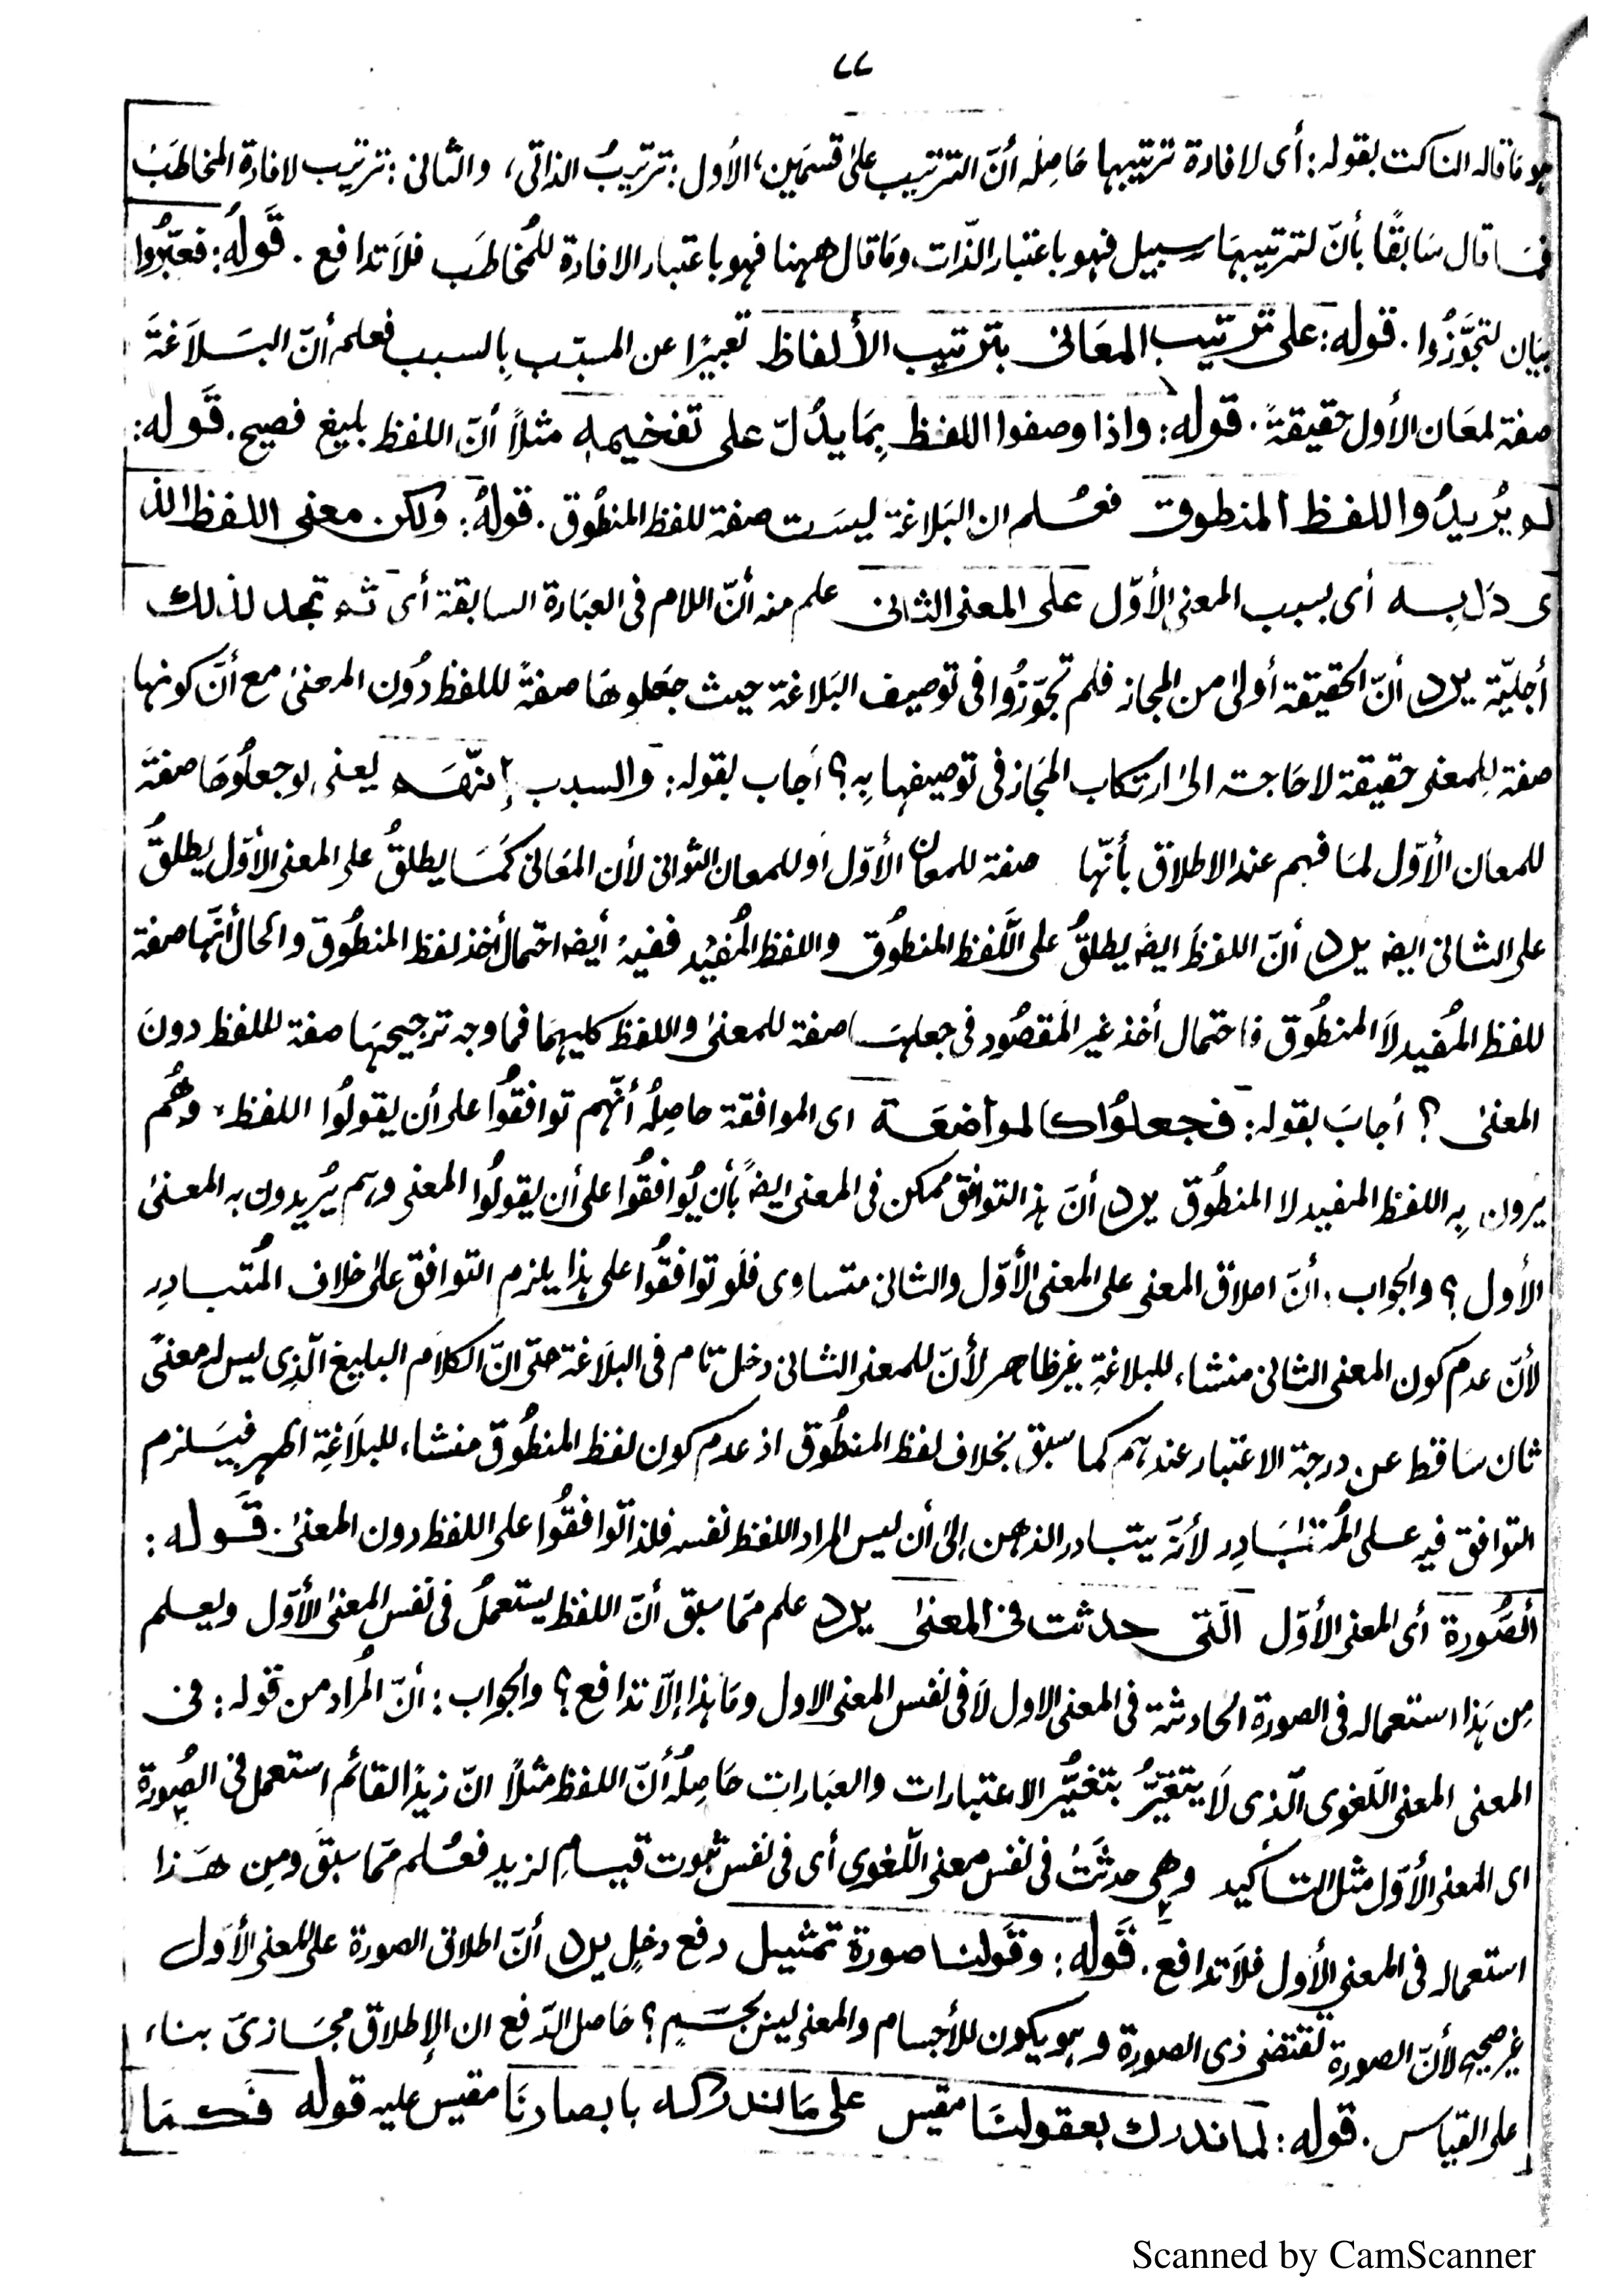 ٧٧
هو ما قاله الناكت بقوله: أى لافادة ترتيبها حَاصِلُه أنّ الترتيب على قسمَين، الأول: ترتيبُ الذاتى، والثانى: ترتيب لافادة المخاطَبُ
فمَا قال سَابقًا بأنّ لترتيبهَا سبيل فهو باعتبار الذّات ومَا قال ههنا فهو باعتبار الافادة للمُخاطَب فلاَ تدافع. قَولُه: فعبّرُوا
بيَان لتجَوَّزُوا. قوله: على ترتيب المعَانى بترتيب الألفاظ تعبيرًا عن المسبّب بِالسبب فعلم أنّ البَلاَغَةَ
صفة لمعَان الأول حقيقةً. قوله: واذا وصفوا اللفظ بِمَا يدُلّ على تفخيمه مثلاً أنّ اللفظ بليغ فصيح. قَوله:
لم يُريدُوا اللفظ المنطوق فعُلم ان البَلاغة ليسَت صفة للفظ المنطُوق. قولُه: ولكن معنى اللفظ الذ
ى دَل بِه أى بسبب المعنى الأوّل على المعنى الثانى علم منه أنّ اللام فى العبَارة السابقة أى ثم تجد لذلك
أجليّة يرد أنّ الحقيقة أولىٰ من المجاز فلم تجوّزُوا فى توصيف البَلاغة حيث جعَلوهَا صفةً لللفظ دُون المعنىٰ مع أنَّ كونها
صفة لِلمعنى حقيقة لا حَاجة الىٰ ارتكاب المجَاز فى توصيفها بِه؟ أجاب بقوله: والسبب إنّهَم يعنى لو جعلُوهَا صفةً
للمعان الأوّل لمَا فهم عند الاطلاق بأنّها صفة للمعان الأوّل أو للمعان الثوانى لأن المعَانى كَمَا يطلقُ على المعنى الأوّل يطلقُ
على الثانى ايضا يرد أنّ اللفظَ ايضا يطلقُ على اللّفظ المنطُوق واللفظ المُفيْد ففيهُ أيضا احتمال أخذ لفظ المنطُوق والحال أنّها صفة
للفظ المُفيد لاَ المنطُوق فاحتمال أخذ غير المَقصُود فى جعلهَا صفة للمعنىٰ واللفظ كليهمَا فما وجه ترجيحهَا صفة لللفظ دونَ
المعنىٰ؟ أجابَ بقوله: فجعلوُا كالمواضعَة اى الموافقة حاصِلُه أنّهم توافقُوا على أن يقولُوا اللفظ، وهُم
يرون بِه اللفظ المفيد لا المنطُوق يرد أنّ هذا التوافق ممكن فى المعنى ايضاً بأن يُوافقُوا على أن يقولُوا المعنى وهم يُريدون به المعنىٰ
الأول؟ والجواب: أنّ اطلاق المعنى على المعنى الأوّل والثانى متساوِى فلَو توافقُوا على هذا يلزم التوافق علىٰ خلاف المُتبادِر
لأنّ عدم كون المعنى الثانى منشاء للبلاغةِ غير ظاهر لأنّ للمعنى الثانى دخل تام فى البلاَغة حتّى انّ الكلاَم البليغ الّذِى ليس له معنىً
ثان سَاقط عن درجة الاعتبار عندهم كما سبق بخلاف لفظ المنطُوق اذ عدم كون لفظ المنطُوق منشاء للبلاَغِة اظهر فيَلزم
التوافق فيه على المُتبَادِر لأنّه يتبادر الذهن إلىٰ أن ليس المراد اللفظ نفسه فلذا توافقُوا على اللفظ دون المعنىٰ. قَوله:
ألصُّورة أى المعنى الأوّل الّتى حدثت فى المعنىٰ يرد علم ممّا سبق أنّ اللفظ يستعملُ فى نفس المعنىٰ الأوّل ويعلم
مِن هَذا استعماله فى الصورة الحَادثة فى المعنى الاول لاَ فى نفس المعنى الاول ومَا هذا إلاّ تدافع؟ والجواب: أنّ المُراد من قوله: فى
المعنى المعنى اللّغوى الّذى لاَ يتغيَّرُ بتغيُّر الاعتبارات والعبَارات حَاصِلُه أنّ اللفظ مثلاً انّ زيدًا لقائم استعمل فى الصُورة
اى المعنى الأوّل مثل التأكيد وهِى حدثَتْ فى نفس معنى اللّغوِى أى فى نفس ثبوت قيام لزيد فعُلم ممّا سبَقَ ومِن هَذا
استعماله فى المعنى الأول فلاَ تدافع. قَوله: وقَولنا صورة تمثيل دفع دخلٍ يرد أنّ اطلاق الصورة على المعنى الأول
غير صحيح لأنّ الصورة تقتضى ذى الصورة وهو يكون للأجسام والمعنى ليسَ بجسمٍ؟ حَاصل الدّفع ان الإطلاق مجَازىّ بناء
على القياس. قوله: لما ندرك بعقولنَا مقيس على مَا ندركه بابصارنَا مقيس عليه قوله فكمَا
Scanned by CamScanner